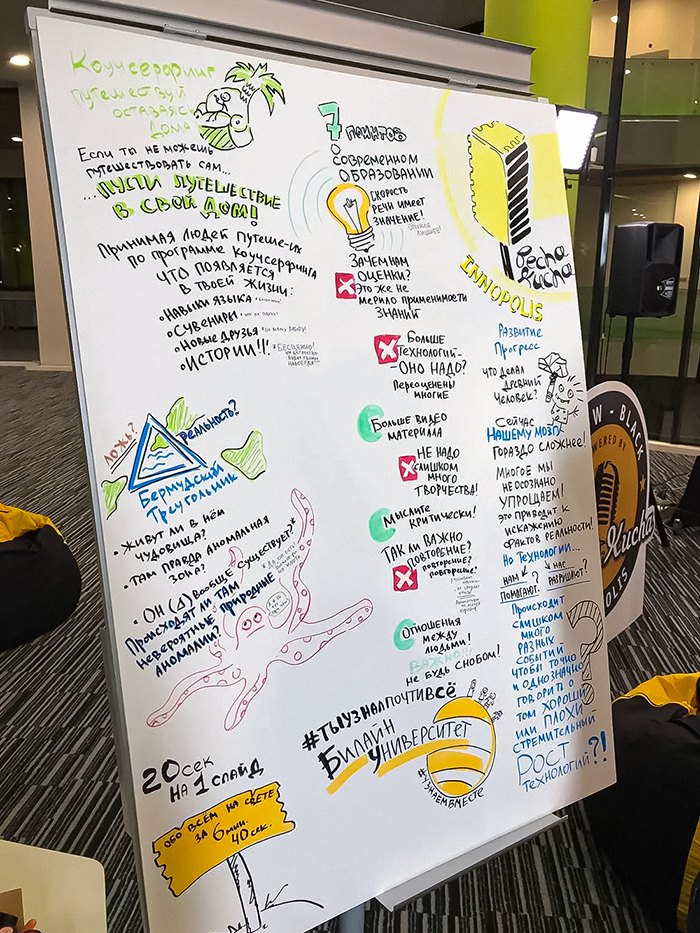 Коучсерфинг
путешествуй
оставаясь
дома
Если ты не можешь
путешествовать сам...
...ПУСТИ ПУТЕШЕСТВИЕ
В СВОЙ ДОМ!
Принимая людей путеше-их
по программе Коучсерфинга
что появляется
в твоей жизни:
• Навыки языка
• Сувениры
• Новые друзья
• ИСТОРИИ!!!
• БЕСЦЕННО!
Ложь?
реальность?
Бермудский
Треугольник
• Живут ли в нём
чудовища?
• Там правда аномальная
зона?
• Он (Δ) вообще существует?
Происходят ли там
невероятные природные
аномалии?
20 сек
на 1 слайд
обо всём на свете
за 6 мин.
40 сек.
7 пойнтов
о современном
образовании
Скорость
речи имеет
значение!
Зачем нам
оценки?
Это же не
мерило применимости
знаний
Больше
технологий –
– оно надо?
Переоценены
многие
Больше видео
материлла
Не надо
слишком
много
творчества!
Мыслите
критически!
Так ли важно
повторение?
повторение?
повторение?
Отношения
между
людьми!
ВАЖНО!!!
не будь снобом!
#ТЫУЗНАЛПОЧТИВСЁ
Билайн
Университет
#УЗНАЕМВМЕСТЕ
Pecha
Kucha
INNOPOLIS
Развитие
Прогресс
что делал
древний
человек?
Сейчас
нашему мозгу
гораздо сложнее!
Многое мы
неосознано
упрощаем!
это приводит к
искажению
фактов реальности!
Но технологии...
нам
помогают?
нас
разрушают?
Происходит
слишком
много
разных
событий
чтобы точно
и однозначно
говорить о
том хороший
или плохи
стремительный
рост
технологий?!
W - BLACK
POWERED BY
Kucha
POLIS